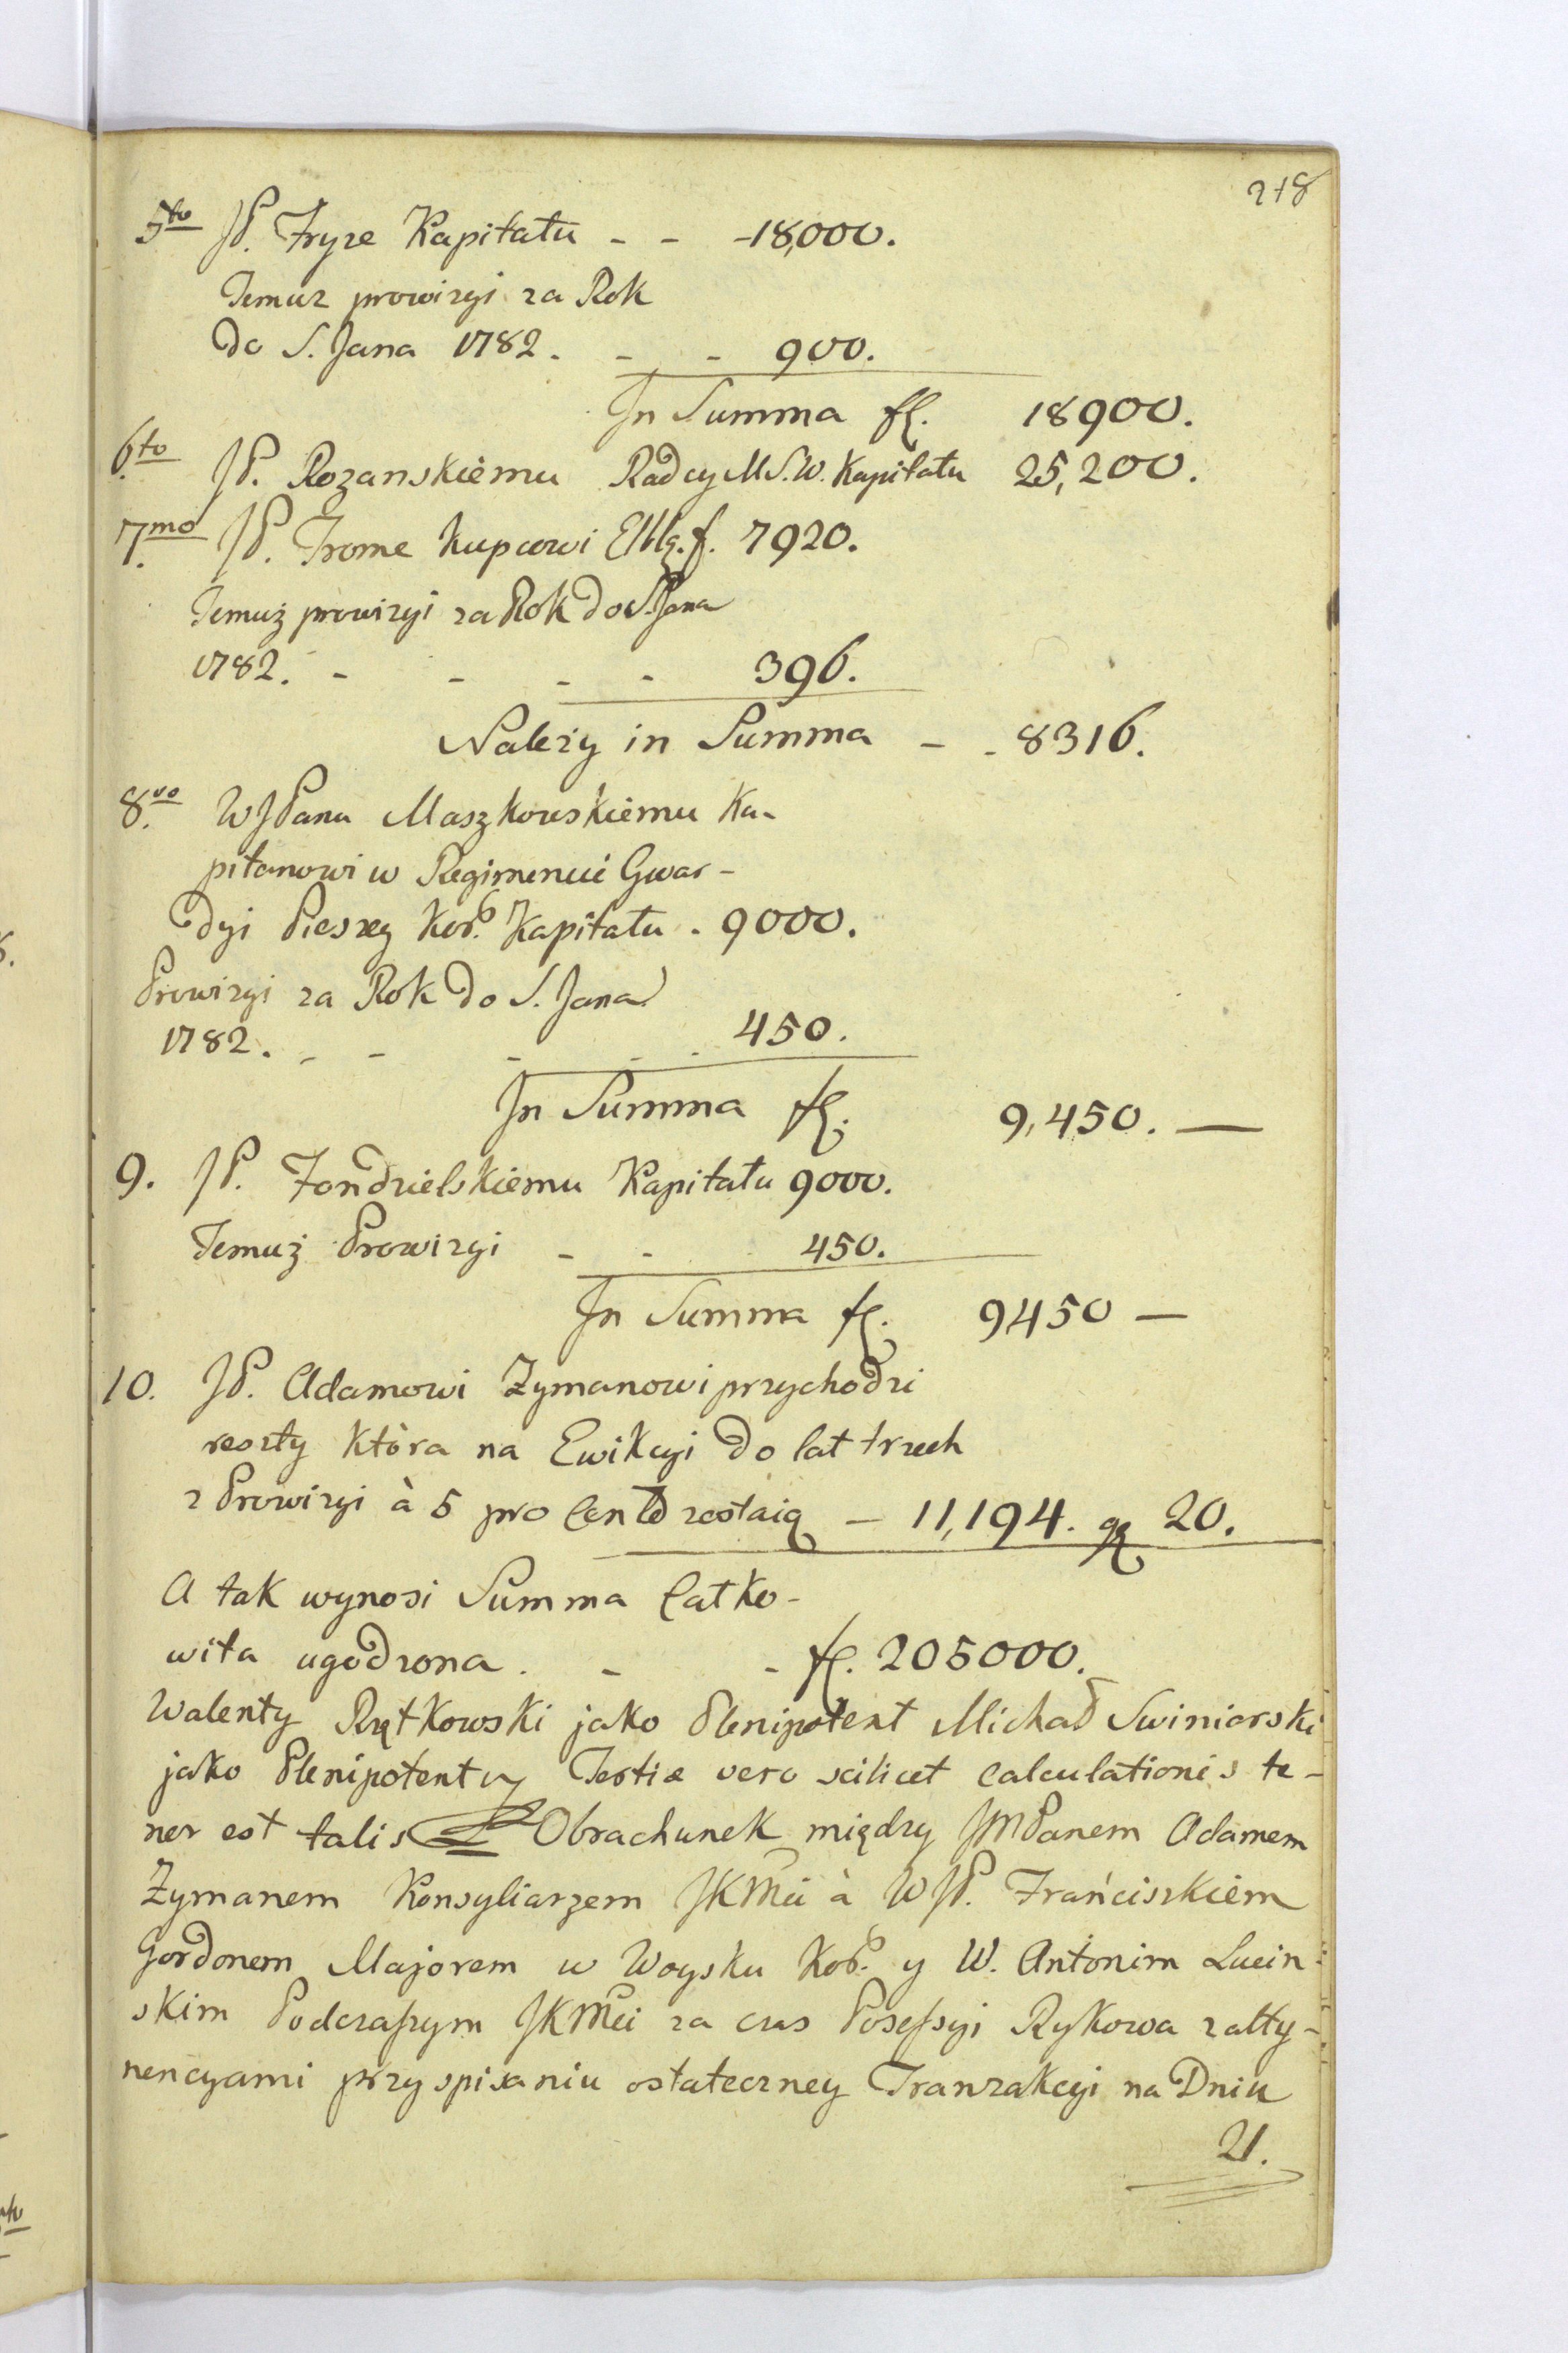 218
5to JP. Fryze Kapitału - - - 18,000.
Temuz prowizyi za Rok
do S. Jana 1782. - - 900.
In Summa fl. 18900.
6to JP. Rozanskiemu Radcy M.S.W. Kapitału 25,200.
7mo JP. Frome Kupcowi Elblg. f. 7920.
Temuż prowizyi za Rok do S. Jana
1782. - - - - 396.
Należy in Summa - - 8316.
8vo WJPanu Maszkowskiemu Ka-
pitanowi w Regimencie Gwar-
dyi Pieszey Kor. Kapitału . 9000.
Prowizyi za Rok do S. Jana
1782. - - - - - 450.
In Summa fl. 9,450. —
9. JP. Fondzielskiemu Kapitału 9000.
Temuż Prowizyi - - 450.
In Summa fl. 9450 —
10. JP. Adamowi Zymanowi przychodzi
reszty która na Ewikcyi do lat trzech
z Prowizyi à 5 pro Cento zostaią — 11,194. gr 20.
A tak wynosi Summa Całko-
wita ugodzona. - - fl. 205000.
Walenty Rętkowski jako Plenipotent Michał Swiniarski
jako Plenipotent Tertiæ vero scilicet Calculationis te-
nor est talis Obrachunek między JMPanem Adamem
Zymanem Konsyliarzem JKMci à WJP. Franciszkiem
Gordonem Majorem w Woysku Kor. y W. Antonim Lucin-
skim Podczaszym JKMci za czas Posessyi Rykowa z atty-
nencyami przy spisaniu ostateczney Tranzakcyi na Dniu
21.